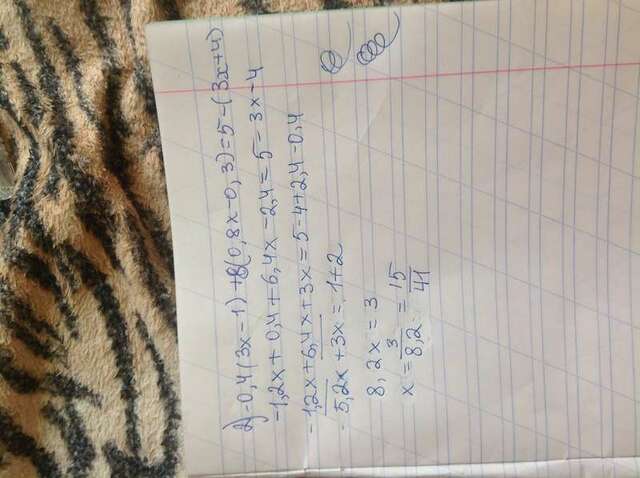 2) -0,4(3x-1)+8(0,8x-0,3)=5-(3x+4)
-1,2x+0,4+6,4x-2,4=5-3x-4
-1,2x+6,4x+3x=5-4+2,4-0,4
-5,2x+3x=1+2
8,2x=3
x=3/8,2=15/41